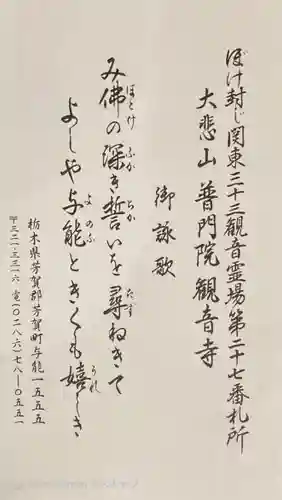 ぼけ封じ関東三十三観音霊場第二十七番札所
大悲山 普門院 観音寺
御詠歌
み佛の深き誓いを尋ねきて
よしや与能ときくも嬉しき
栃木県芳賀郡芳賀町与能一五五五
〒三二一-三三一六 電(〇二八六)七八-〇五五一